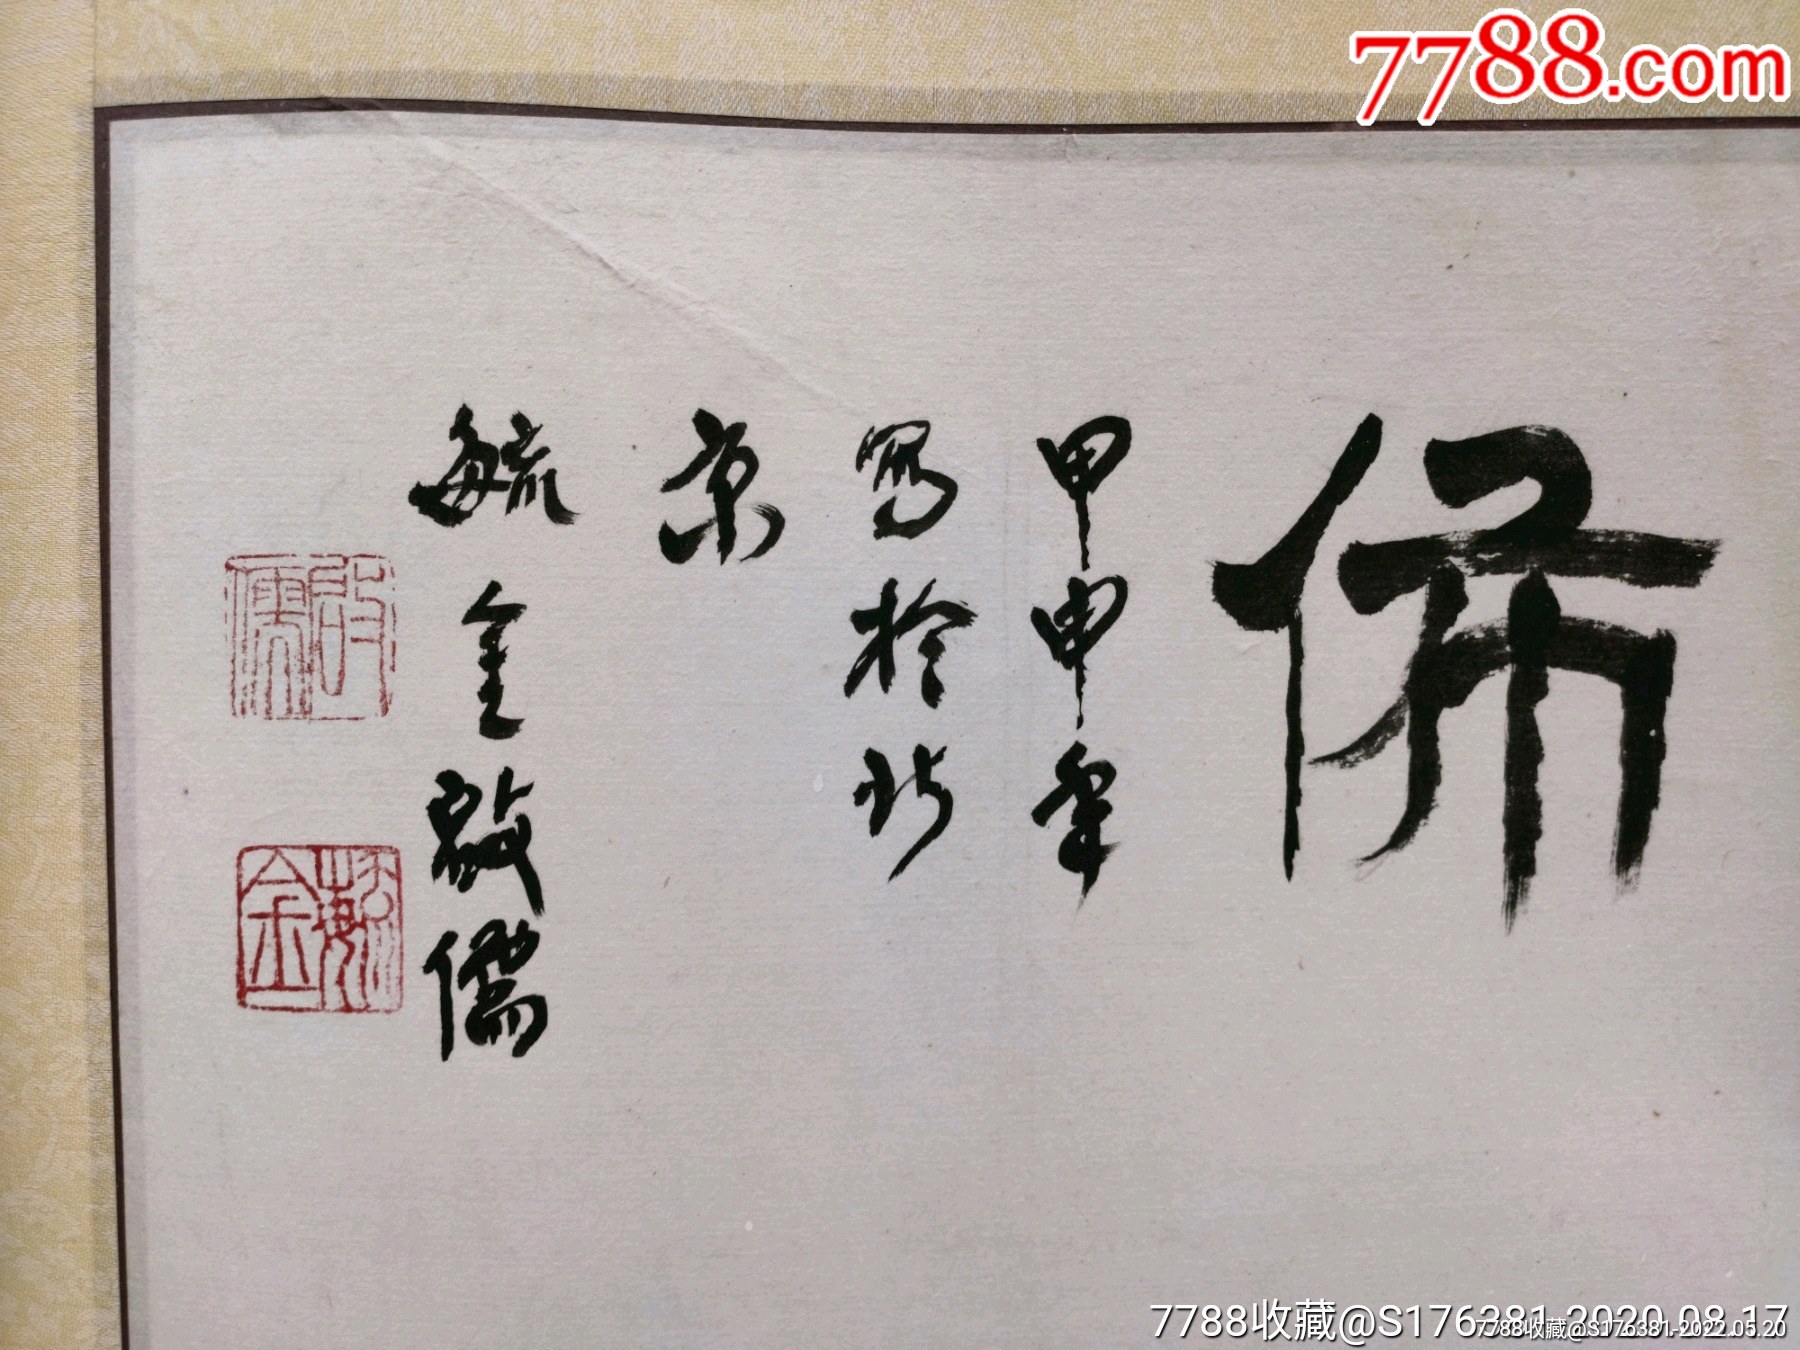 7788.com
甲申年
寫於北
京
毓金啟儒
啟儒
毓金
7788收藏@S176381-2020.08.17
7788收藏@S176381-2022.05.20